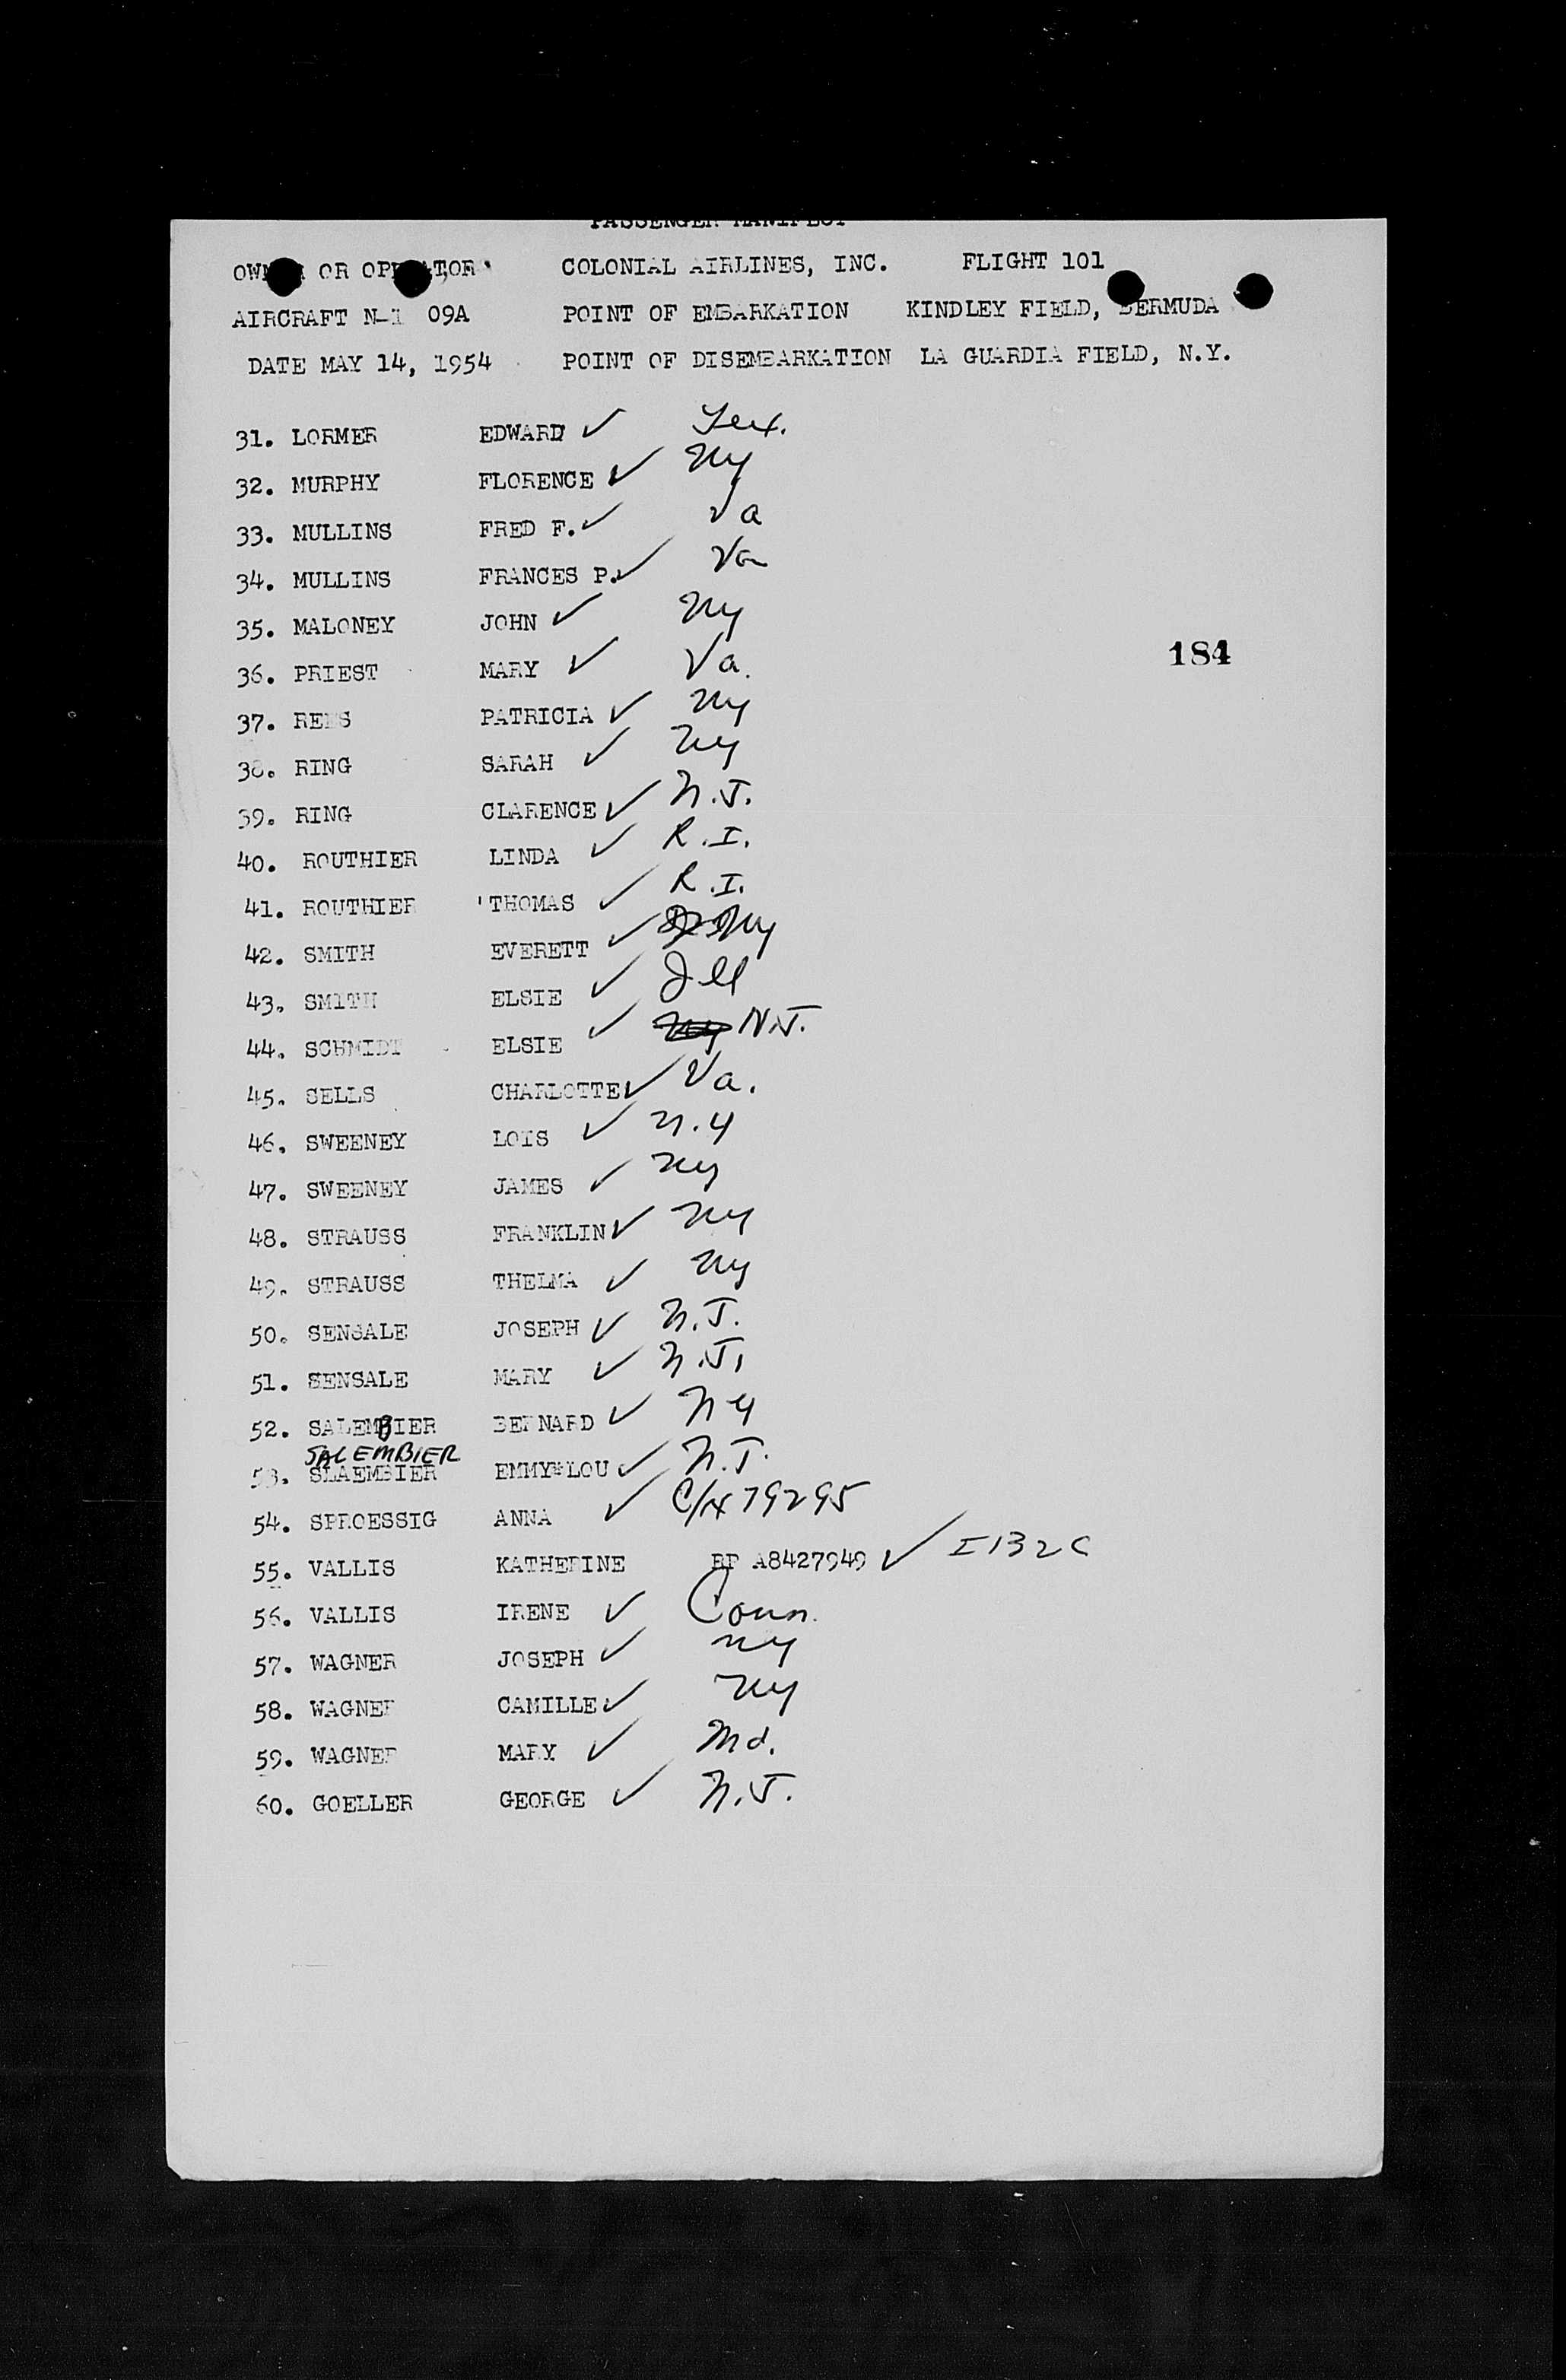 PASSENGER MANIFEST
OWNER OR OPERATOR COLONIAL AIRLINES, INC. FLIGHT 101
AIRCRAFT N-1 09A POINT OF EMBARKATION KINDLEY FIELD, BERMUDA
DATE MAY 14, 1954 POINT OF DISEMBARKATION LA GUARDIA FIELD, N.Y.
31. LORMER EDWARD ✓ Tex.
32. MURPHY FLORENCE ✓ Ny
33. MULLINS FRED F. ✓ Va
34. MULLINS FRANCES P. ✓ Va
35. MALONEY JOHN ✓ Ny
184
36. PRIEST MARY ✓ Va.
37. REES PATRICIA ✓ Ny
38. RING SARAH ✓ Ny
39. RING CLARENCE ✓ N.J.
40. ROUTHIER LINDA ✓ R.I.
41. ROUTHIER THOMAS ✓ R.I.
42. SMITH EVERETT ✓ Ny
43. SMITH ELSIE ✓ Ill
44. SCHMIDT ELSIE ✓ Ny N.J.
45. SELLS CHARLOTTE ✓ Va.
46. SWEENEY LOIS ✓ N.Y
47. SWEENEY JAMES ✓ Ny
48. STRAUSS FRANKLIN ✓ Ny
49. STRAUSS THELMA ✓ Ny
50. SENSALE JOSEPH ✓ N.J.
51. SENSALE MARY ✓ N.J.
52. SALEMBIER BERNARD ✓ NY
SALEMBIER
53. SLAEMBIER EMMY LOU ✓ N.J.
54. SPROESSIG ANNA ✓ C/N 79295
55. VALLIS KATHERINE RP A8427949 ✓ I132C
56. VALLIS IRENE ✓ Conn.
57. WAGNER JOSEPH ✓ Ny
58. WAGNER CAMILLE ✓ Ny
59. WAGNER MARY ✓ Md.
60. GOELLER GEORGE ✓ N.J.